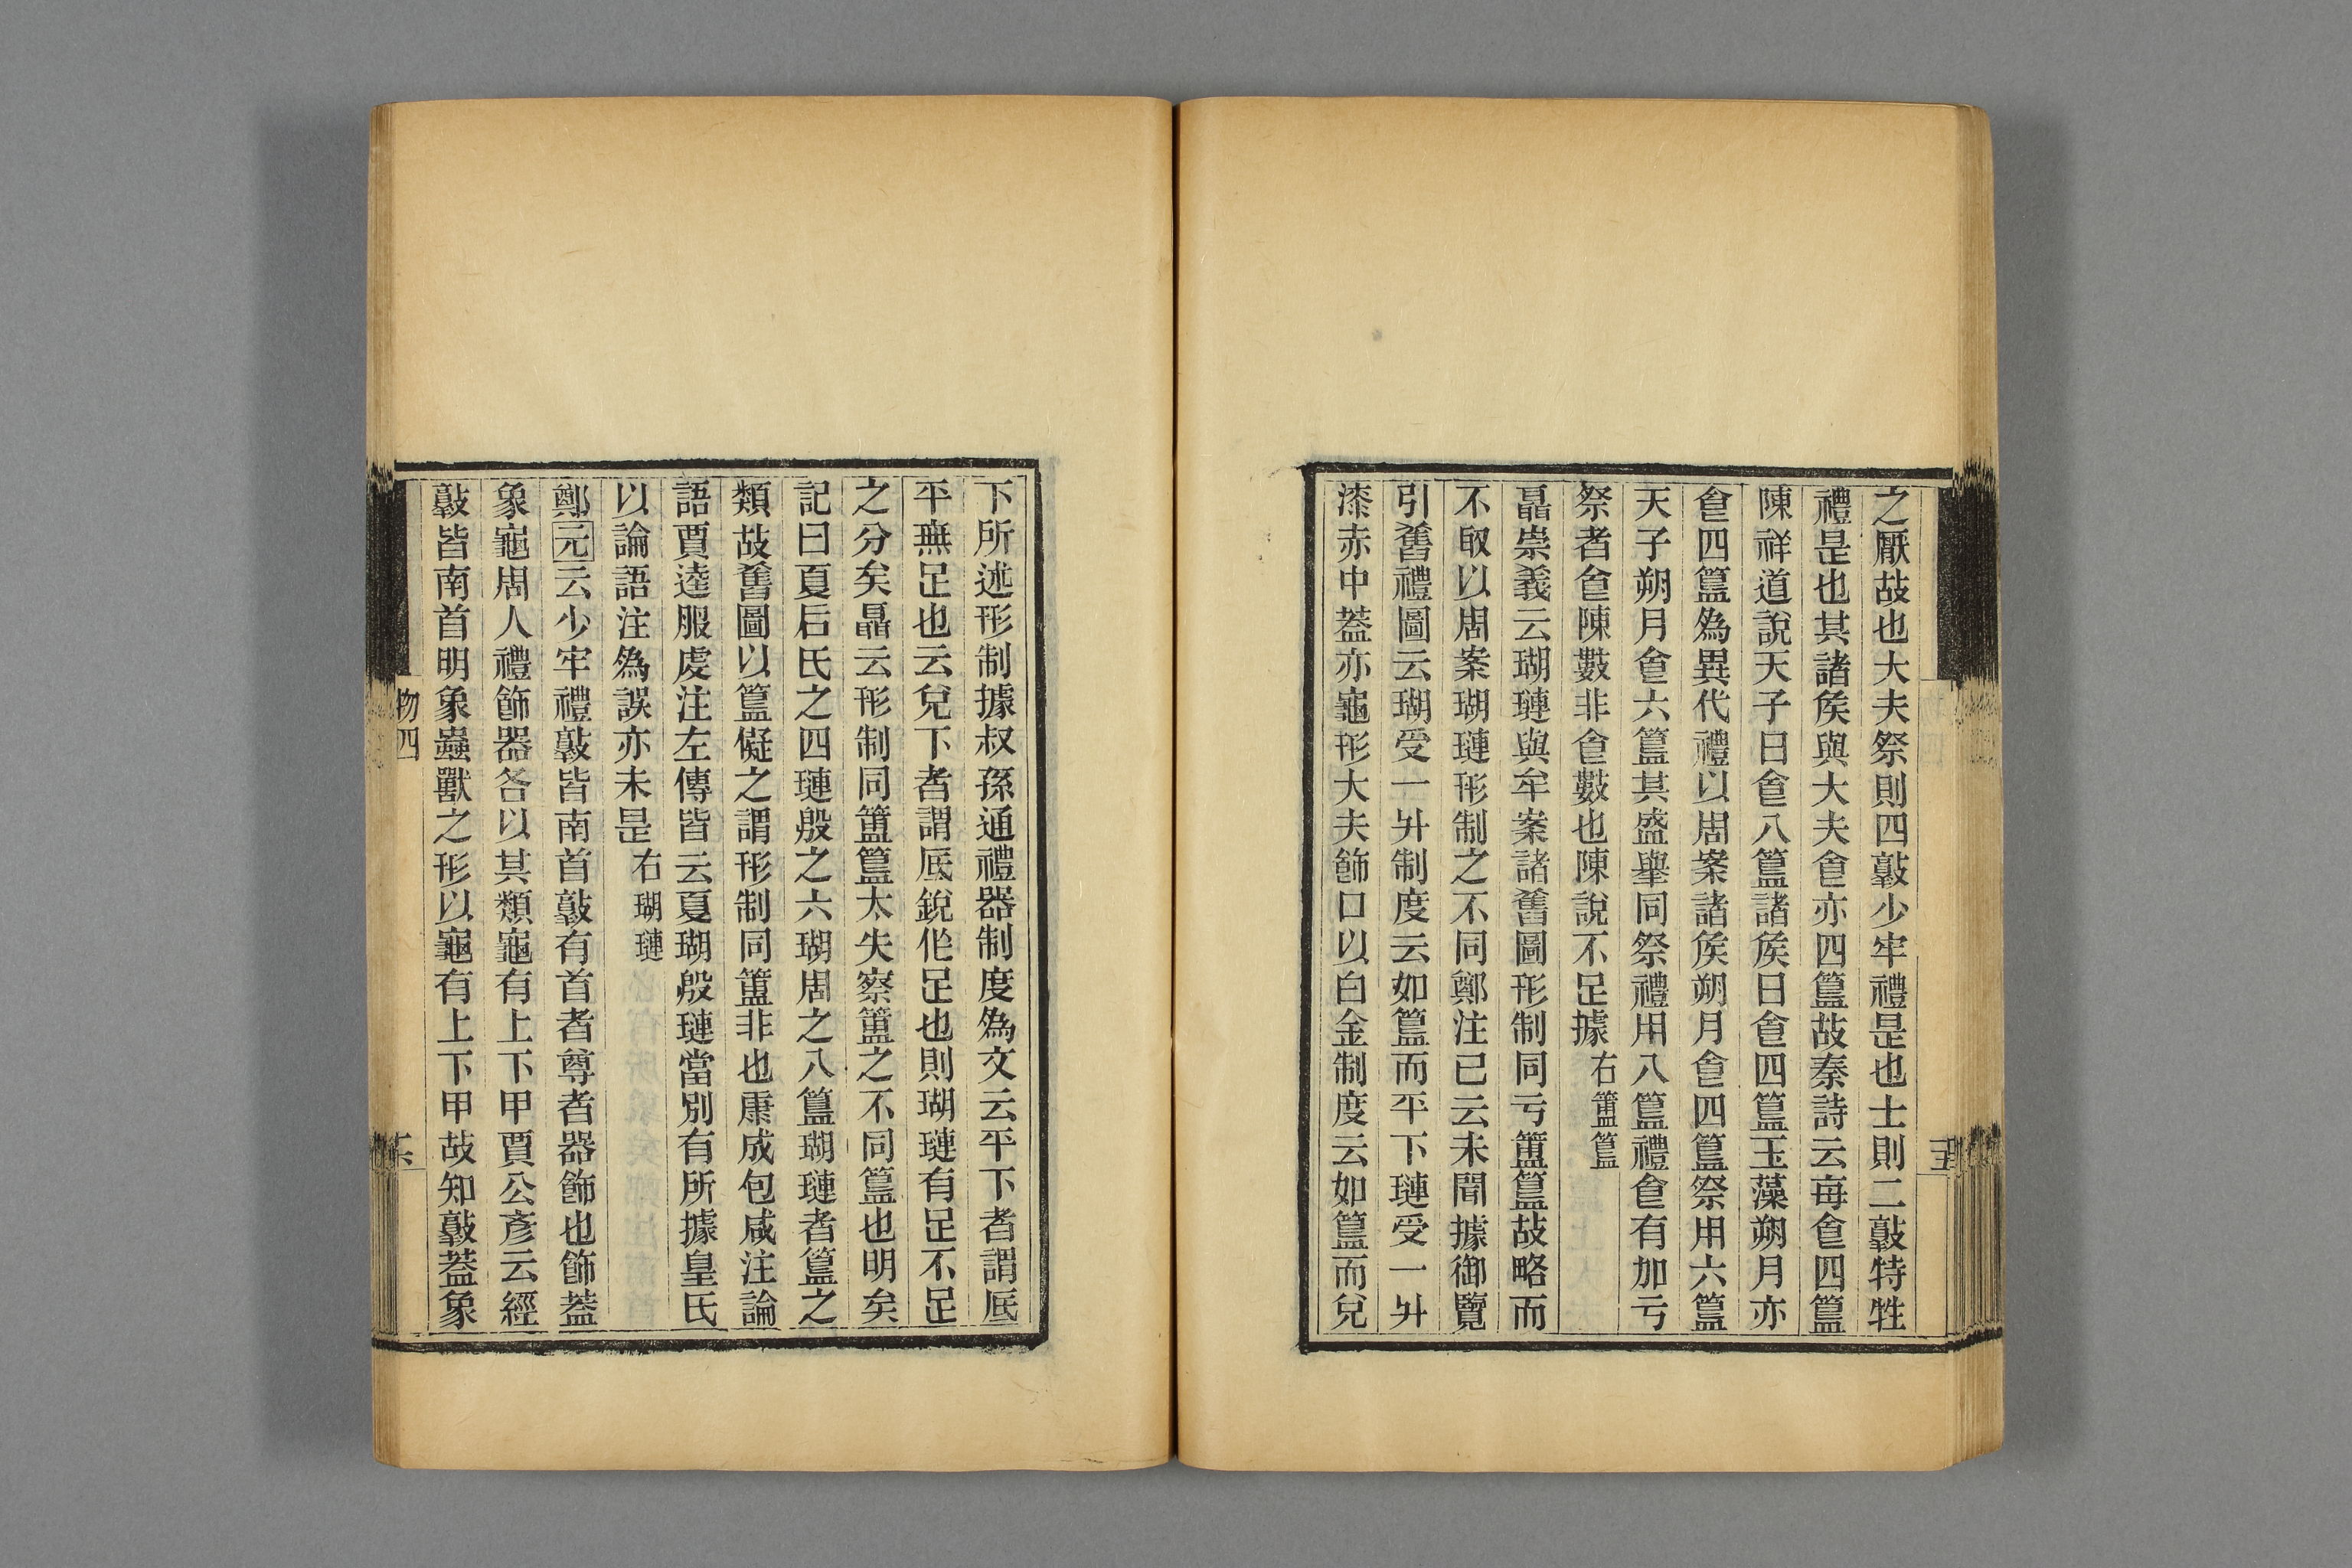 之厭故也大夫祭則四敦少牢禮是也士則二敦特牲
禮是也其諸侯與大夫食亦四簋故秦詩云每食四簋
陳祥道說天子日食八簋諸侯日食四簋玉藻朔月亦
食四簋爲異代禮以周案諸侯朔月食四簋祭用六簋
天子朔月食六簋其盛舉同祭禮用八簋禮食有加亏
祭者食陳數非食數也陳說不足據右簠簋
聶崇義云瑚璉與牟案諸舊圖形制同亏簠簋故略而
不取以周案瑚璉形制之不同鄭注已云未聞據御覽
引舊禮圖云瑚受一升制度云如簋而平下璉受一升
漆赤中蓋亦龜形大夫飾口以白金制度云如簋而兌
下所述形制據叔孫通禮器制度爲文云平下者謂底
平無足也云兌下者謂底銳作足也則瑚璉有足不足
之分矣聶云形制同簠簋大失察簠之不同簋也明矣
記曰夏后氏之四璉殷之六瑚周之八簋瑚璉者簋之
類故舊圖以簋儗之謂形制同簠非也康成包咸注論
語賈逵服虔注左傳皆云夏瑚殷璉當別有所據皇氏
以論語注爲誤亦未是右瑚璉
鄭元云少牢禮敦皆南首敦有首者尊者器飾也飾蓋
象龜周人禮飾器各以其類龜有上下甲賈公彥云經
敦皆南首明象蟲獸之形以龜有上下甲故知敦蓋象
物四